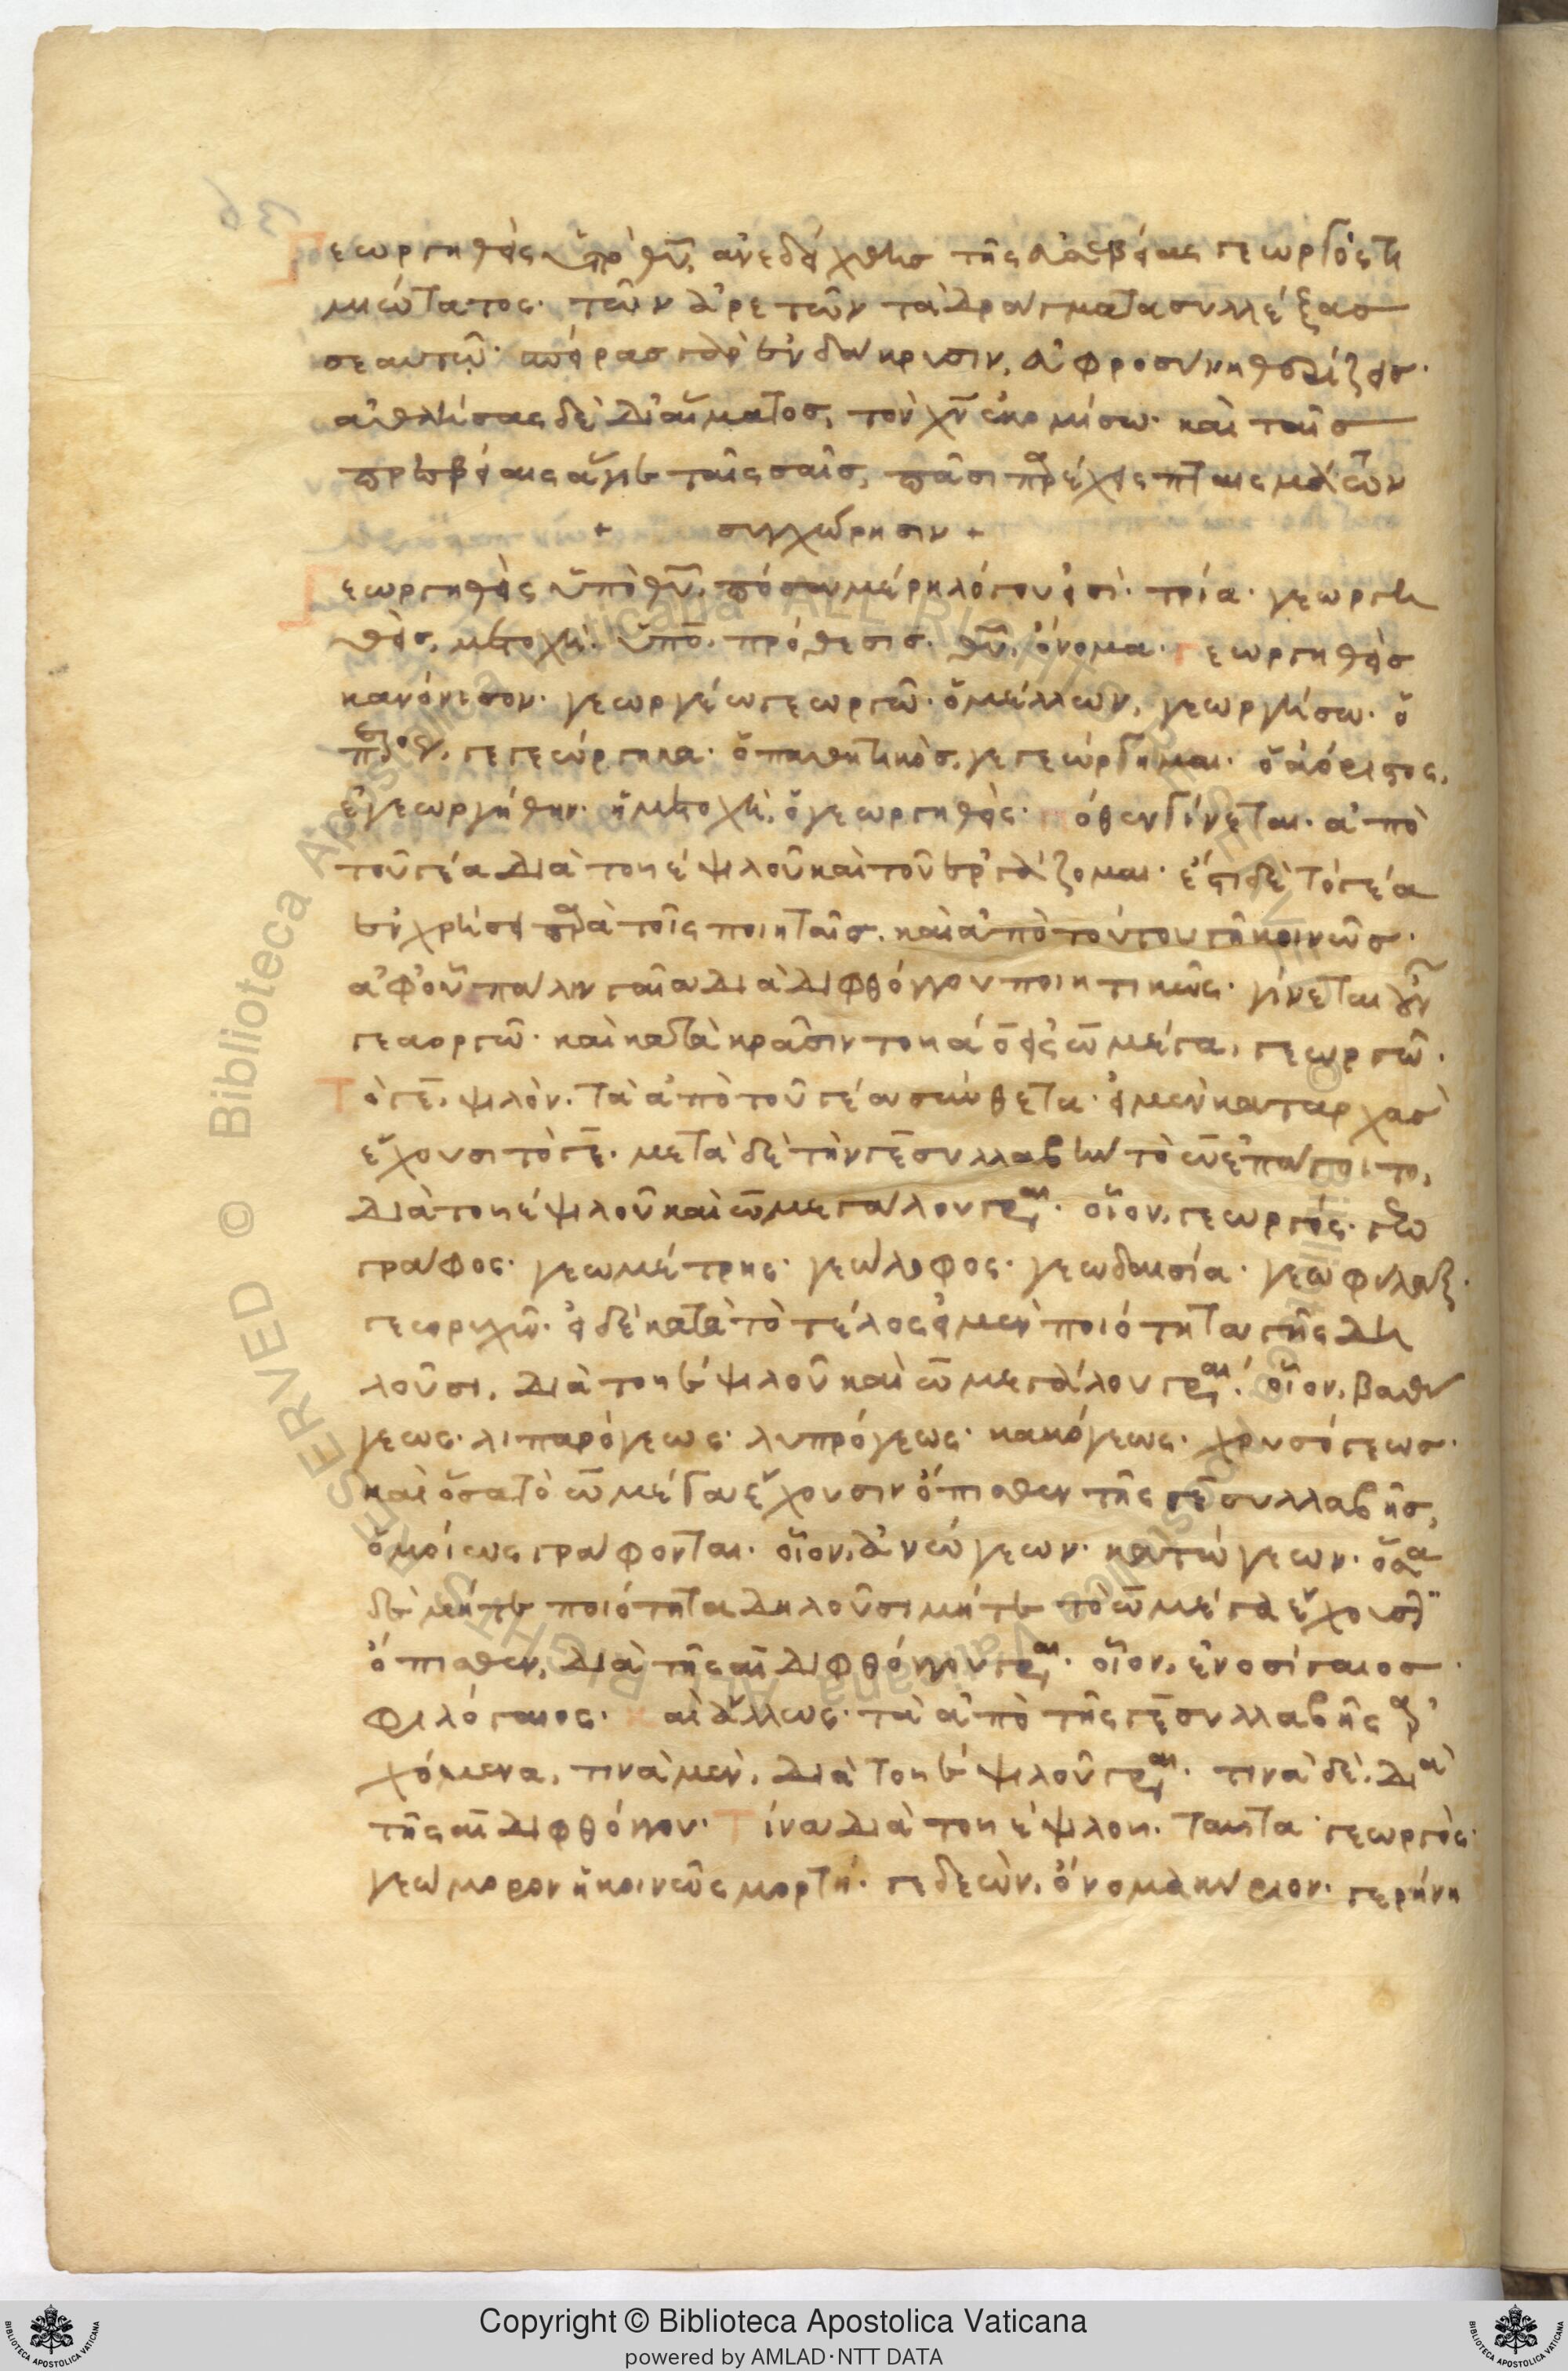 36
Γεωργηθεὶς ὑπὸ θῡ, ἀνεδείχθης τῆς εὐσεβείας γεωργὸς τι
μιώτατος· τῶν ἀρετῶν τὰ δράγματα συλλέξας
σεαυτῷ· σπείρας γὰρ ἐν δάκρυσιν, εὐφροσύνη θερίζεις·
ἀθλήσας δὲ δι' αἵματος, τὸν χν̄ ἐκομίσω· καὶ ταῖς
πρεσβείαις ἅγιε ταῖς σαῖς, πᾶσι παρέχεις πταισμάτων
+ συγχώρησιν +
Γεωργηθεὶς ὑπὸ θῡ. πόσα μέρη λόγου εἰσί· τρία· γεωργη
θεὶς, μετοχή· ὑπὸ. πρόθεσις. θῡ, ὄνομα· γεωργηθεὶς
κανόνισον· γεωργέω γεωργῶ· ὁ μέλλων, γεωργήσω· ὁ
γεγεώργηκα· ὁ παθητικὸς, γεγεώργημαι· ὁ ἀόριστος,
ἐγεωργήθην· ἡ μετοχὴ, ὁ γεωργηθείς· πόθεν γίνεται· ἀπὸ
τοῦ γέα διὰ τοῦ ε ψιλοῦ καὶ τοῦ ἐργάζομαι· ἔστι δὲ τὸ γέα
ἐν χρήσει παρὰ τοῖς ποιηταῖς. καὶ ἀπὸ τούτου γῆ κοινῶς·
ἀφ' οὗ πάλιν γαῖα διὰ διφθόγγου ποιητικῶς· γίνεται οὖν
γεαοργῶ· καὶ κατὰ κρᾶσιν τοῦ α ο εἰς ω μέγα, γεωργῶ.
Τὸ γε, ψιλὸν. τὰ ἀπὸ τοῦ γέα σύνθετα· εἰ μὲν καταρχὰς
ἔχουσι τὸ γε· μετὰ δὲ τὴν γε συλλαβὴν τὸ ω ἐπάγοιτο,
διὰ τοῦ ε ψιλοῦ καὶ ω μεγάλου γραι· οἷον, γεωργός· γεω
γράφος· γεωμέτρης· γεώλοφος· γεωδαισία· γεωφύλαξ·
γεωριχῶν· εἰ δὲ κατὰ τὸ τέλος εἰ μὲν ποιότητα γῆς δη
λοῦσι, διὰ τοῦ ε ψιλοῦ καὶ ω μεγάλου γραι· οἷον, βαθύ
γεως· λιπαρόγεως· λυπρόγεως· κακόγεως· χρυσόγεως·
καὶ ὅσα τὸ ω μέγα ἔχουσιν ὄπισθεν τῆς γε συλλαβῆς,
ὁμοίως γράφονται· οἷον, ἀνώγεων· κατώγεων· ὅσα
δε μήτε ποιότητα δηλοῦσι μήτε τὸ ω μέγα ἔχουσιν
ὄπισθεν, διὰ τῆς αι διφθόγγου γραι· οἷον, ἐνοσίγαιος·
φιλόγαιος· καὶ ἄλλως· τὰ ἀπὸ τῆς γε συλλαβῆς ἀρ
χόμενα, τινὰ μὲν, διὰ τοῦ ε ψιλοῦ γραι· τινὰ δὲ, διὰ
τῆς αι διφθόγγου· Τίνα διὰ τοῦ ε ψιλοῦ. ταῦτα· γεωργὸς·
γεώμορον ἡ κοινῶς μορτή· γεδεὼν, ὄνομα κύριον· γερήνη
Copyright © Biblioteca Apostolica Vaticana
powered by AMLAD·NTT DATA